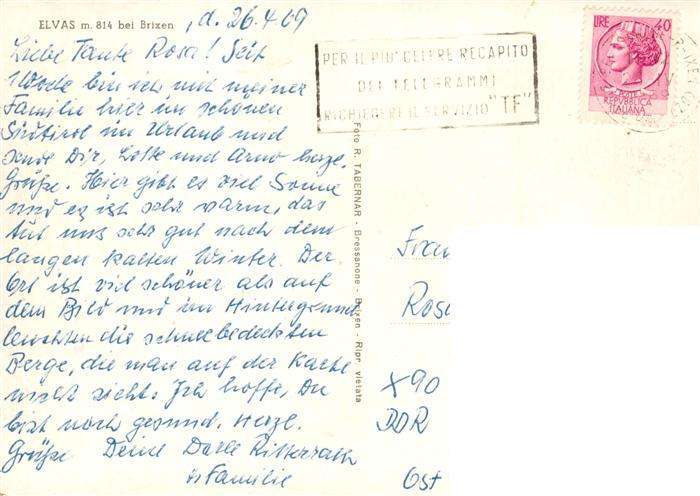 ELVAS m. 814 bei Brixen
, d. 26.4.69
Liebe Tante Rosa! Seit
1 Woche bin ich mit meiner
Familie hier im schönen
Südtirol im Urlaub und
sende Dir, Lotte und Arno herzl.
Grüße. Hier gibt es viel Sonne
und es ist sehr warm, das
tut uns sehr gut nach dem
langen kalten Winter. Der
Ort ist viel schöner als auf
dem Bild und im Hintergrund
leuchten die schneebedeckten
Berge, die man auf der Karte
nicht sieht. Ich hoffe, Du
bist noch gesund. Herzl.
Grüße Deine
Familie
PER IL PIU' CELERE RECAPITO
DEI TELEGRAMMI
RICHIEDERE IL SERVIZIO "TF"
LIRE 40
REPVBBLICA
ITALIANA
Foto R. TABERNAR - Bressanone - Brixen - Ripr. vietata
Frau
Rosa
X90
DDR
Ost